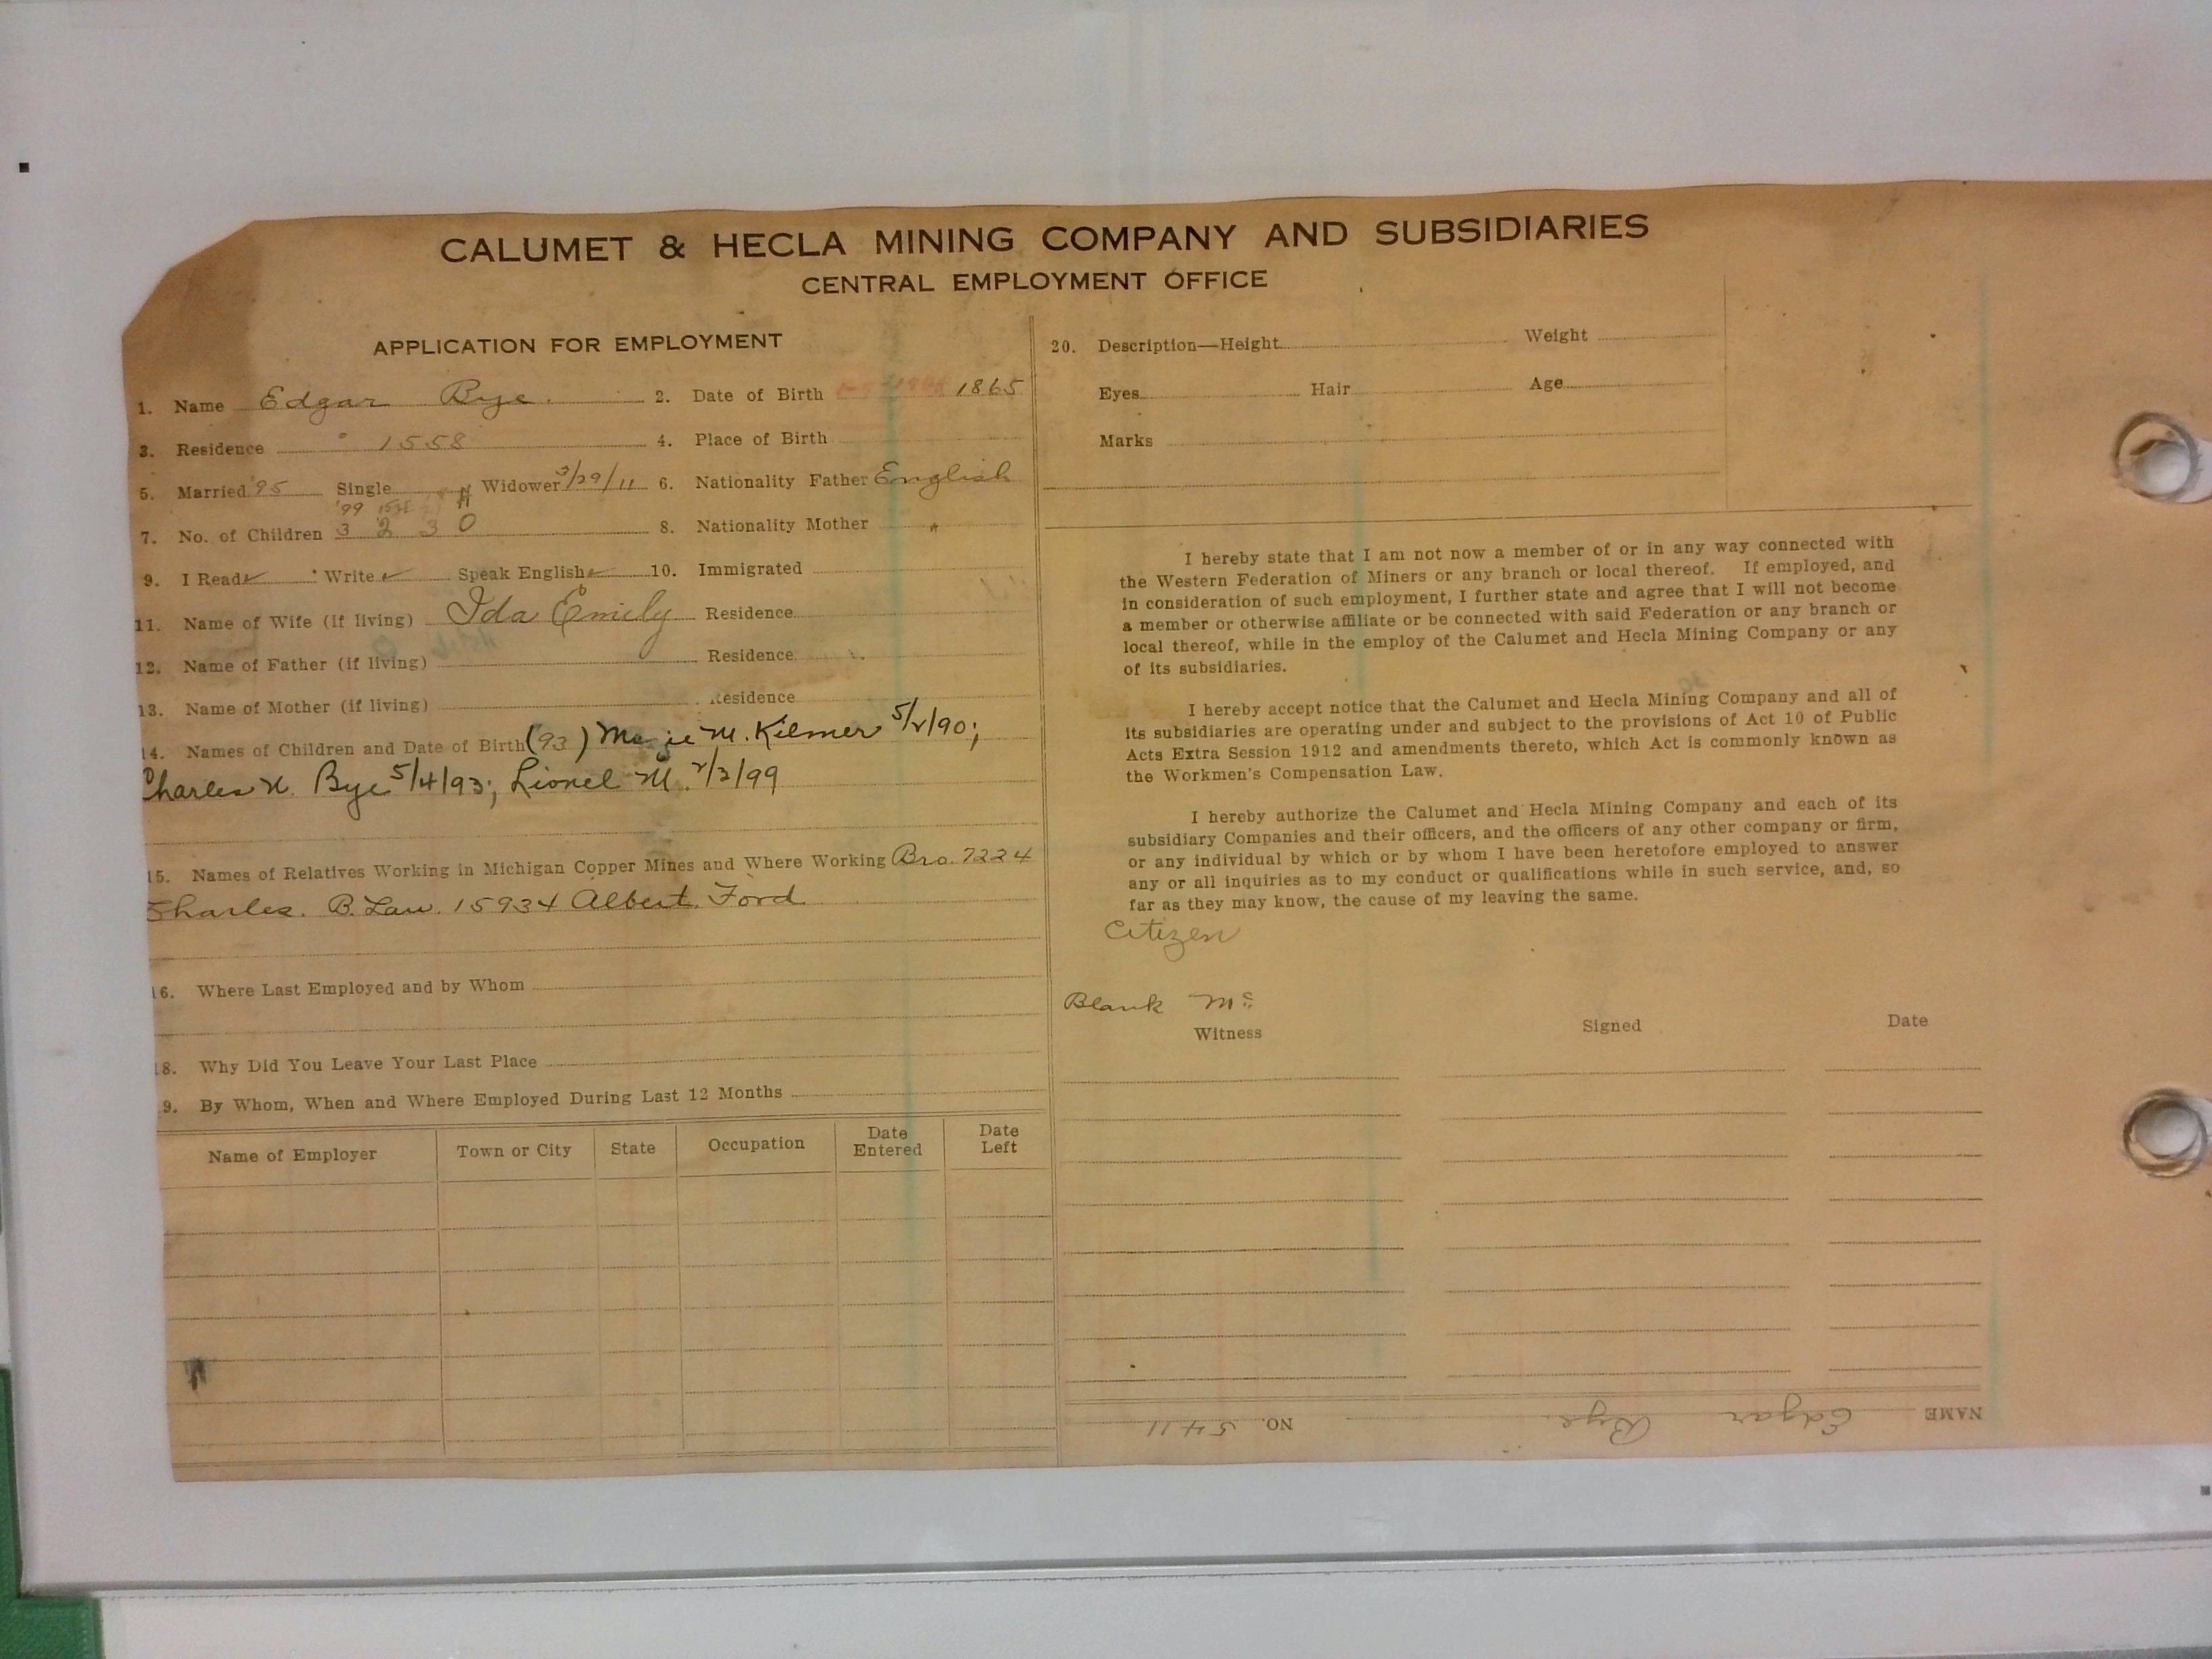 CALUMET & HECLA MINING COMPANY AND SUBSIDIARIES
CENTRAL EMPLOYMENT OFFICE
APPLICATION FOR EMPLOYMENT
1. Name Edgar Bye. 2. Date of Birth 1865
3. Residence " 1558 4. Place of Birth
5. Married '95 Single Widower 3/29/11 6. Nationality Father English
'99
7. No. of Children 3 2 3 0 8. Nationality Mother "
9. I Read ✓ Write ✓ Speak English ✓ 10. Immigrated
11. Name of Wife (if living) Ida Emily Residence
12. Name of Father (if living) Residence
13. Name of Mother (if living) Residence
14. Names of Children and Date of Birth (93) M. Kilmer 5/2/90;
Charles H. Bye 5/4/93; Lionel M. 2/3/99
15. Names of Relatives Working in Michigan Copper Mines and Where Working Bro. 7224
Charles. B. Law. 15934 Albert Ford
16. Where Last Employed and by Whom
18. Why Did You Leave Your Last Place
9. By Whom, When and Where Employed During Last 12 Months
Name of Employer Town or City State Occupation Date Entered Date Left
20. Description—Height Weight
Eyes Hair Age
Marks
I hereby state that I am not now a member of or in any way connected with
the Western Federation of Miners or any branch or local thereof. If employed, and
in consideration of such employment, I further state and agree that I will not become
a member or otherwise affiliate or be connected with said Federation or any branch or
local thereof, while in the employ of the Calumet and Hecla Mining Company or any
of its subsidiaries.
I hereby accept notice that the Calumet and Hecla Mining Company and all of
its subsidiaries are operating under and subject to the provisions of Act 10 of Public
Acts Extra Session 1912 and amendments thereto, which Act is commonly known as
the Workmen's Compensation Law.
I hereby authorize the Calumet and Hecla Mining Company and each of its
subsidiary Companies and their officers, and the officers of any other company or firm,
or any individual by which or by whom I have been heretofore employed to answer
any or all inquiries as to my conduct or qualifications while in such service, and, so
far as they may know, the cause of my leaving the same.
Citizen
Blank Mc
Witness Signed Date
NAME Edgar Bye. NO. 5411